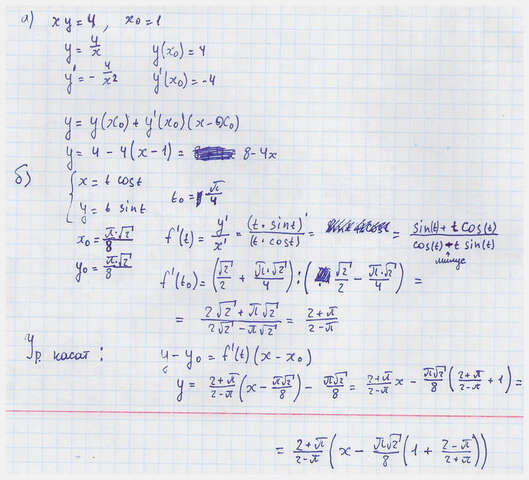 а) xy = 4, x₀ = 1
y = 4/x y(x₀) = 4
y' = -4/x² y'(x₀) = -4
y = y(x₀) + y'(x₀)(x - x₀)
y = 4 - 4(x - 1) = 8 - 4x
б) { x = t cos t
y = t sin t t₀ = π/4
x₀ = π·√2/8 f'(t) = y'/x' = (t·sin t)'/(t·cos t)' = = sin(t) + t cos(t)/cos(t) - t sin(t)
минус
y₀ = π·√2/8 f'(t₀) = (√2/2 + π·√2/4) : (√2/2 - π√2/4) =
= 2√2 + π√2/2√2 - π√2 = 2+π/2-π
Ур. касат: y - y₀ = f'(t)(x - x₀)
y = 2+π/2-π (x - π√2/8) - π√2/8 = 2+π/2-π x - π√2/8 (2+π/2-π + 1) =
= 2+π/2-π (x - π√2/8 (1 + 2-π/2+π))